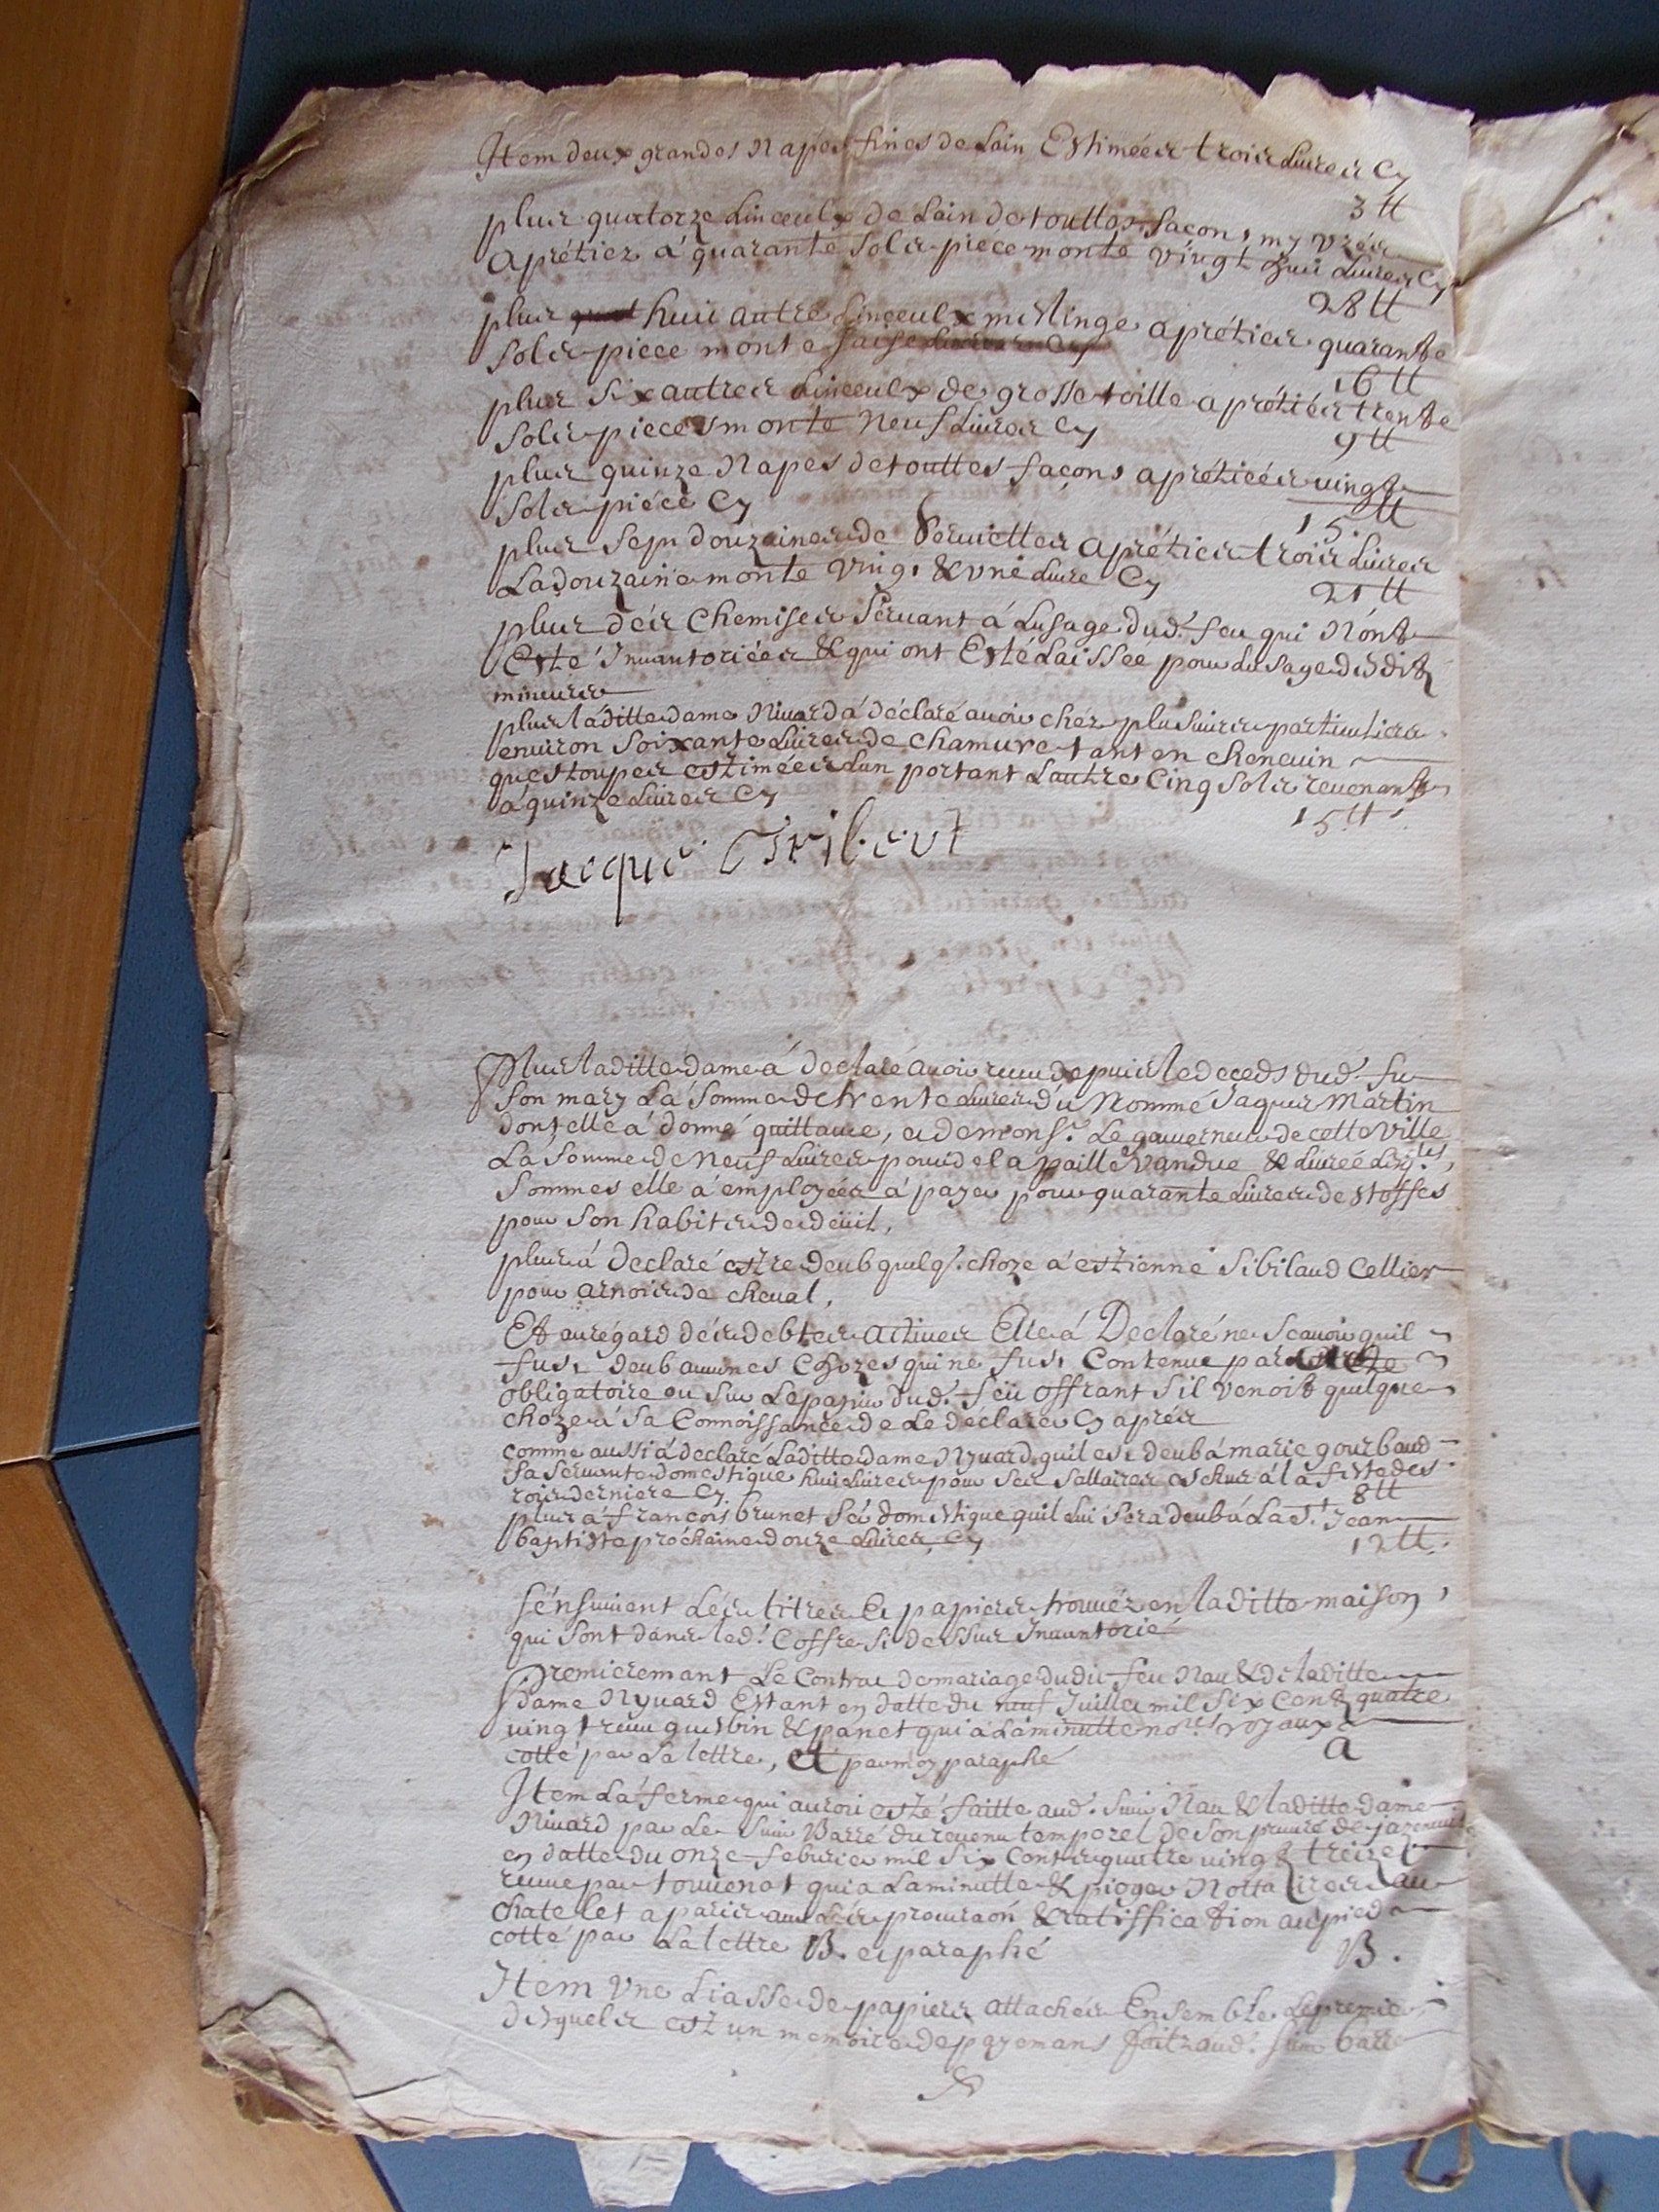 Item deux grandes Napes fines de Lain Estimées trois Livres Cy
3 tt
plus quatorze Linceulx de Lain de touttes façons my uzés
Aprétiez à quarante sols piece monte vingt huit Livres Cy
28 tt
plus huit autre Linceulx mislinge aprétiés quarante
sols piece monte saise
16 tt
plus six autres Linceulx de grosse toille aprétiés trente
sols pieces monte Neuf Livres Cy
9 tt
plus quinze Napes de touttes façons aprétiées vingt
sols piéce Cy
15 tt
plus sept douzaines de Serviettes aprétiés trois Livres
La douzaine monte vingt & une Livre Cy
21 tt
plus dés Chemises Servant á Lusage dud. feu qui Nont
Esté Inuantoriées & qui ont Esté Laissée pour Lusage desdits
mineurs
plus láditte dame Niuard á déclaré auoir chez plusuirs particuliers
enuiron soixante Liures de chamure tant en cheneuin
questoupes estimées Lun portant Lautre Cinq sols reuenant
á quinze Liures Cy
15 tt
Jacque Tribert
Plus laditte dame á declare auoir receu depuis le deceds dud. fu
son mary La Somme de trente Liures du Nommé Jaques Martin
dont elle á donné quittance, et de mons.r Le gouuerneur de cette Ville
La Somme de Neuf Liures pour de la paille vandue & Liurée
Sommes elle á employées á payer pour quarante Liures de stoffes
pour son habits de deüil,
plus á declaré estre deub quelq. choze á estienne Sibilaud Cellier
pour arnois de cheual,
Et au régard dés debtes actiues Elle á Declaré ne scauoir quil
fust deub aucunes Chozes qui ne fust Contenue par
obligatoire ou sur Le papier dud. feü offrant sil venoit quelque
choze á sa Connoissance de Le déclarer Cy aprés
comme aussi á declaré Laditte dame Nyuard quil est deub á marie gourbaud
sa seruante domestique huit Liures pour ses sallaires eschus á la feste des
rois derniere Cy
8 tt
plus á françois brunet sé domestique quil lui sera deub á La S.t Jean
baptiste prochaine douze Liures Cy
12 tt.
sénsuiuent Lés titres Et papiers trouués en laditte maison
qui sont dans led. Coffre si dessus Inuantorié
Premieremant Le Contrac de mariage dudit feu Nau & de laditte
dame Nyuard Estant en datte du neuf Juillet mil six Cents quatre
vingt receu & panet qui á La minutte no.res royaux
cotté par La lettre, et par moy paraphé
a
Item La ferme qui auroit esté faitte aud. sieur Nau & laditte dame
Niuard par Le sieur Barré du reuenu temporel de son prieuré de
en datte du onze feburier mil six Cents quatre vingt treize
receue par touuenot qui a La minutte & Nottaires au
chatelet a paris & ratiffication au pied
cotté par La lettre B. et paraphé
B.
Item Une Liasse de papiers attachés Ensemble Le premier
desquels est un memoire de payemans faitz aud. sieur Barré